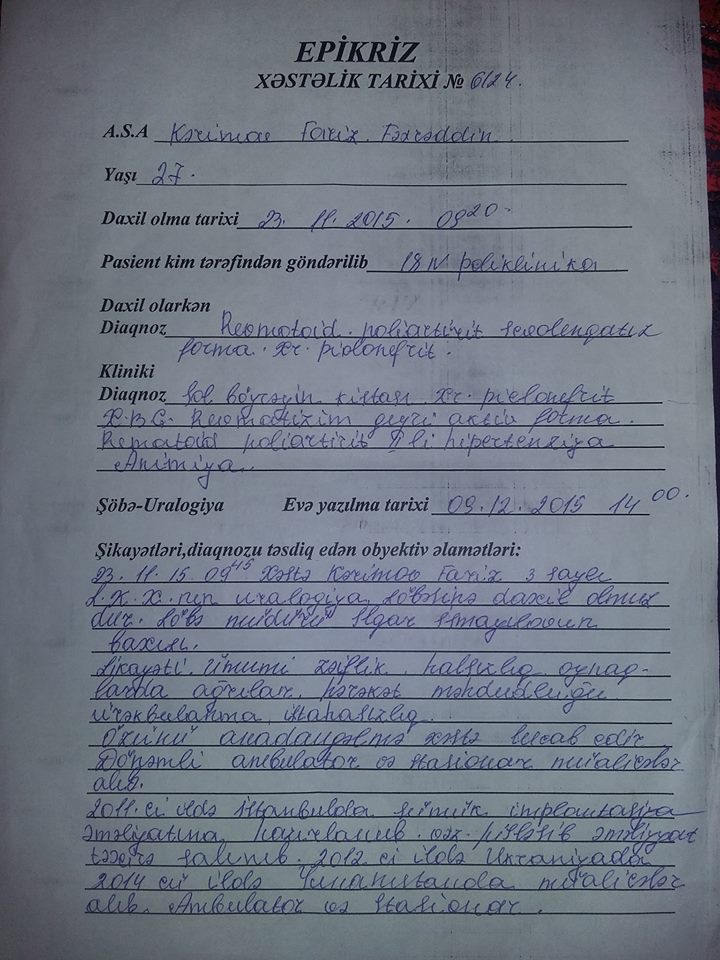 EPİKRİZ
XƏSTƏLİK TARİXİ № 6124.
A.S.A Kərimov Fariz Fəxrəddin
Yaşı 27.
Daxil olma tarixi 23. 11. 2015 09 20
Pasient kim tərəfindən göndərilib 18 N poliklinika
Daxil olarkən
Diaqnoz Revmatoid poliartirit
forma. xr. pielonefrit.
Kliniki
Diaqnoz Sol böyrəyin kistası xr. pielonefrit
X.B.Ç. Revmatizim qeyri aktiv forma.
Rematoid poliartirit II li hipertenziya
Animiya.
Şöbə-Uralogiya Evə yazılma tarixi 09. 12. 2015 14 00.
Şikayətləri,diaqnozu təsdiq edən obyektiv əlamətləri:
23. 11. 15. 09 45 Xəstə Kərimov Fariz 3 saylı
Ş.K.X. nin uralogiya şöbəsinə daxil olmuş
dur. Şöbə müdürü İlqar İsmayılovun
baxışı.
Şikayəti. Ümumi zəiflik halsızlıq oynaq-
larda ağrılar, hərəkət məhdudluğu
ürəkbulanma, iştahasızlıq.
Özünü anadangəlmə xəstə hesab edir
Dönəmli ambulator və stasionar müalicələr
alıb.
2011. ci ildə İstanbulda sümük implantasiya
əməliyatına hazırlanıb. əməliyyat
təxirə salınıb. 2012 ci ildə Ukraniyada
2014 cü ildə Yunanıstanda müalicələr
alıb. Ambulator və stasionar.